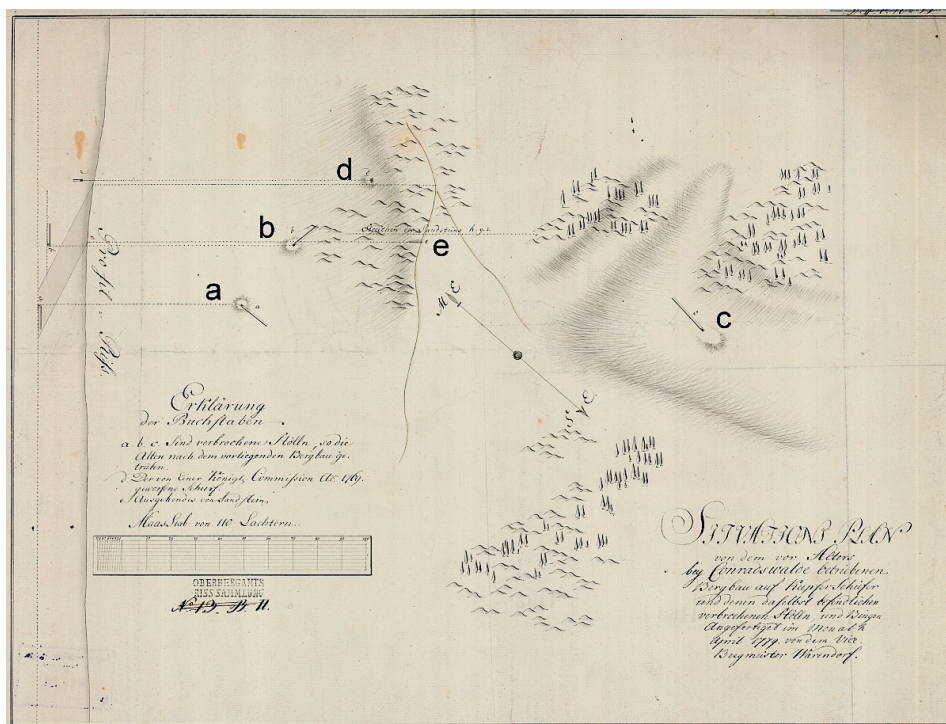 d
b
e
a
c
Profil = Riß.
Streichen im Sandstein h. 9.4.
M E
S E
Erklärung
der Buchstaben
a. b. c. Sind verbrochene Stolln, so die
Alten nach dem vorliegenden Bergbau ge-
trieben.
d. Der von Einer Königl. Commission Ao. 1769.
geworfene Schurf.
e. Ausgehendes von Sandstein.
Maas Stab von 110 Lachtern.
OBERBERGAMTS
RISS SAMMLUNG
No. 13. B II.
SITUATIONS PLAN
von dem vor Alters
bey Conradswalde betriebenen
Bergbau auf Kupfer Schiefer
und denen daselbst befindlichen
verbrochenen Stolln, und Bingen.
Angefertiget im Monath
April 1779. von dem Vice
Bergmeister Wärendorf.